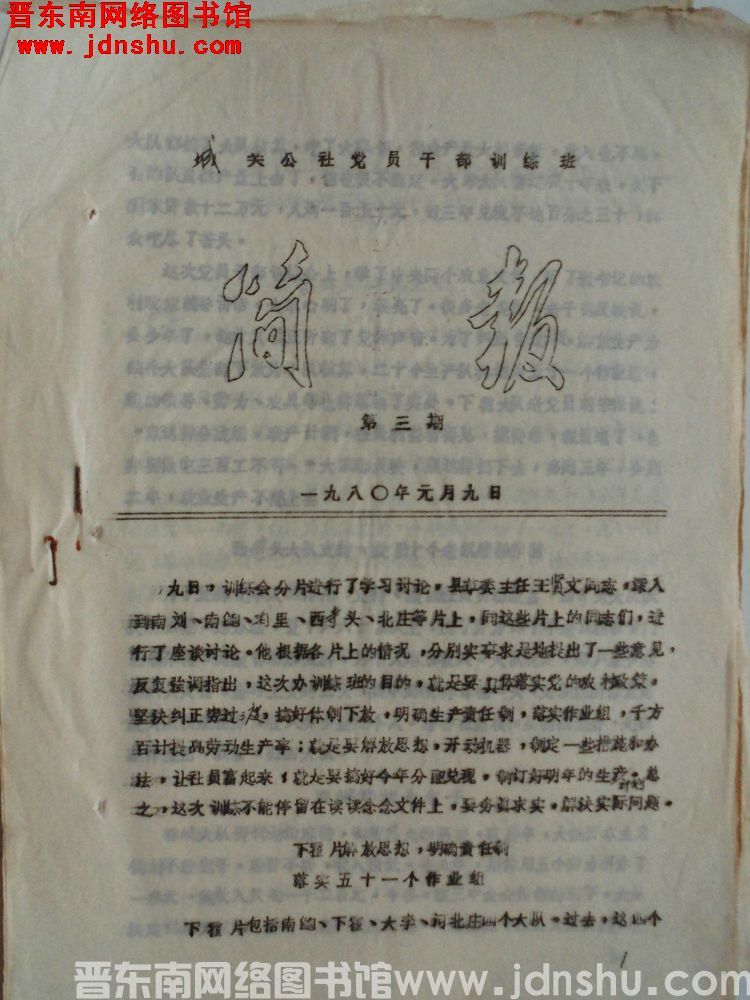 晋东南网络图书馆
www.jdnshu.com
城关公社党员干部训练班
简报
第三期
一九八〇年元月九日
九日,训练会分片进行了学习讨论。县革委主任王贤文同志,深入
到南刘、南鲍、 里、西李头、北庄等片上,同这些片上的同志们,进
行了座谈讨论。他根据各片上的情况,分别实事求是地提出了一些意见,
反复强调指出,这次办训练班的目的,就是要具体落实党的农村政策。
坚决纠正穷过渡,搞好体制下放,明确生产责任制,落实作业组,千方
百计提高劳动生产率;就是要解放思想,开动机器,制定一些措施和办
法,让社员富起来;就是要搞好今年分配兑现,制订好明年的生产计划。总
之,这次训练不能停留在读读念念文件上,要务真求实。解决实际问题。
下霍片解放思想,明确责任制
落实五十一个作业组
下霍片包括南鲍、下霍、大李、河北庄四个大队。过去,这四个
1
晋东南网络图书馆www.jdnshu.com